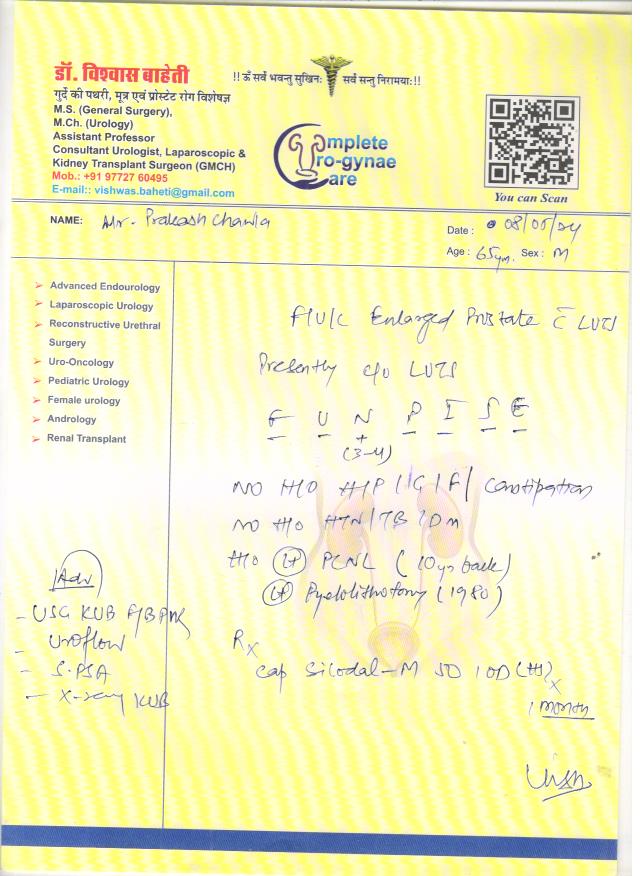 डॉ. विश्वास बाहेती
!! ॐ सर्वे भवन्तु सुखिनः सर्वे सन्तु निरामयाः !!
गुर्दे की पथरी, मूत्र एवं प्रोस्टेट रोग विशेषज्ञ
M.S. (General Surgery),
M.Ch. (Urology)
Assistant Professor
Consultant Urologist, Laparoscopic &
Kidney Transplant Surgeon (GMCH)
Mob.: +91 97727 60495
E-mail:: vishwas.baheti@gmail.com
Complete
Uro-gynae
Care
You can Scan
NAME: Mr. Prakash Chawla
Date : 08/05/24
Age : 65yrs. Sex : M
Advanced Endourology
Laparoscopic Urology
Reconstructive Urethral
Surgery
Uro-Oncology
Pediatric Urology
Female urology
Andrology
Renal Transplant
F/U/C Enlarged Prostate c̄ LUTS
Presently c/o LUTS
F U N P I S E
+
(3-4)
NO H/O H/P/G/F/ Constipation
NO H/O HTN/TB/DM
H/O (Lt) PCNL (10 yrs back)
(Lt) Pyelolithotomy (1980)
Adv
- USG KUB
- Uroflow
- S. PSA
- X-ray KUB
Rx
Cap Silodal-M 50 1 OD (HS)
x
1 month